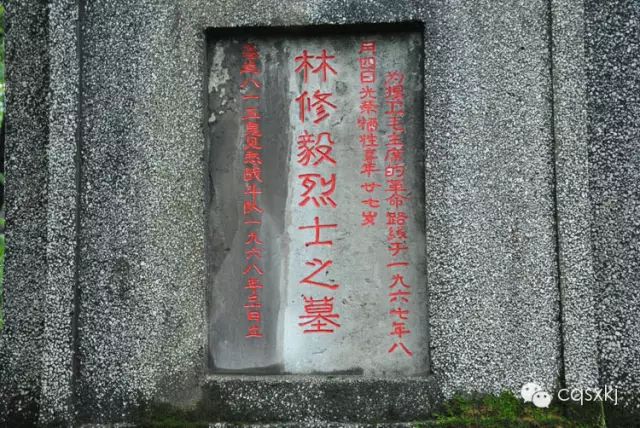 为捍卫毛主席的革命路线于一九六七年八
月四日光荣牺牲享年廿七岁
林修毅烈士之墓
八一五鬼见愁战斗队一九六八年三月立
cqsxkj